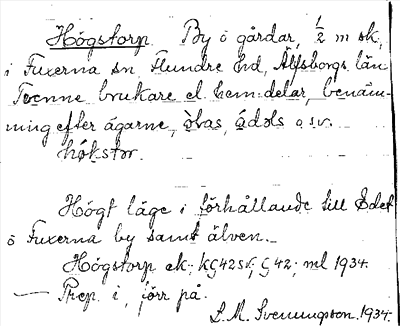 Högstorp By o gårdar, 1/2 m sk,
i Fuxerna sn Flundre hd, Älfsborgs län
Tvenne brukare el. hem.delar, benäm-
ning efter ägarne, òlvas, ádols o.s.v.
hǿkstor.
Högt läge i förhållande till Edet
o Fuxerna by samt älven.
Högstorp ek; kG42sv, G42; ml 1934.
— Prep. i, förr på.
L.M. Svenungson. 1934.